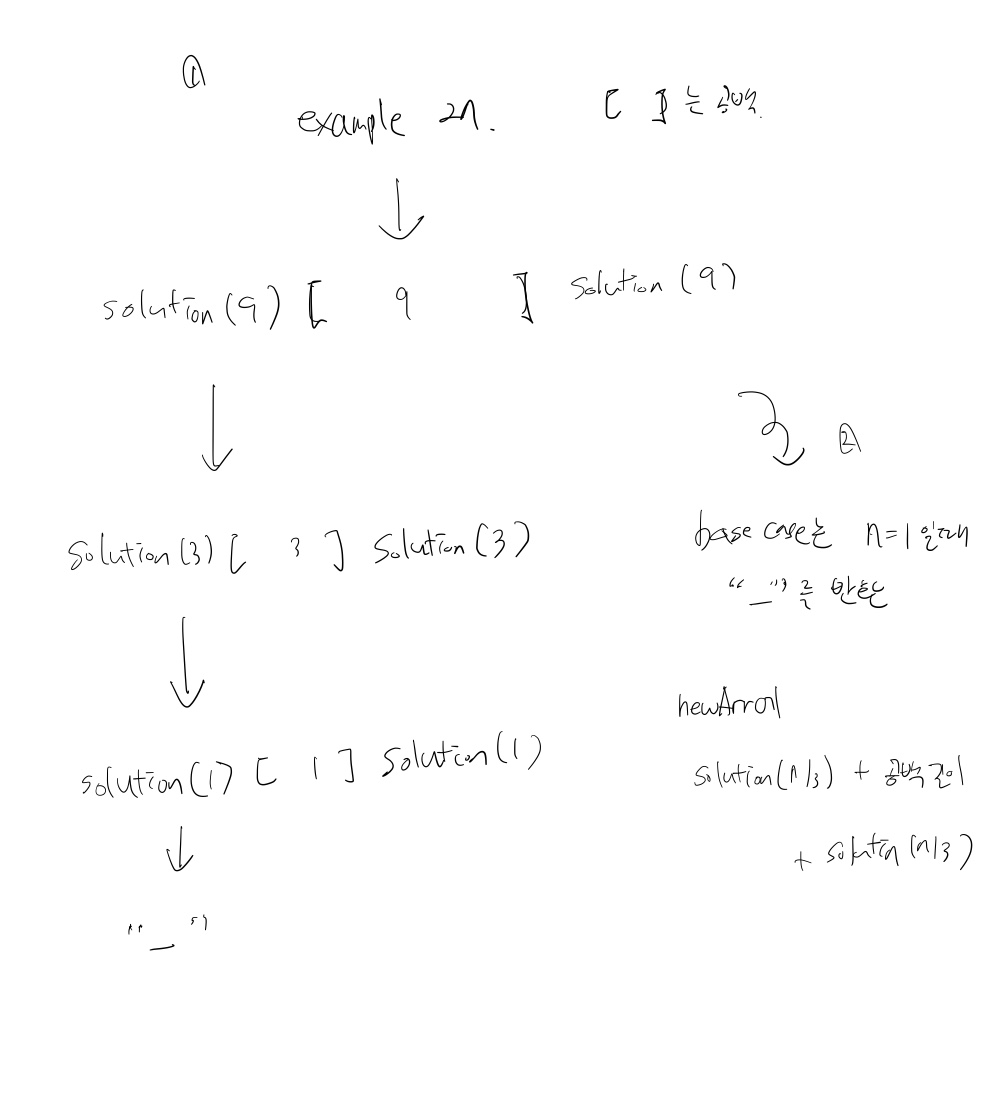 ①
example 27. [ ] 는 공백.
solution(9) [ 9 ] solution(9)
②
solution(3) [ 3 ] solution(3)
base case는 n=1 일때
"_"를 반환
newArray
solution(1) [ 1 ] solution(1)
solution(n/3) + 공백 길이
+ solution(n/3)
"_"